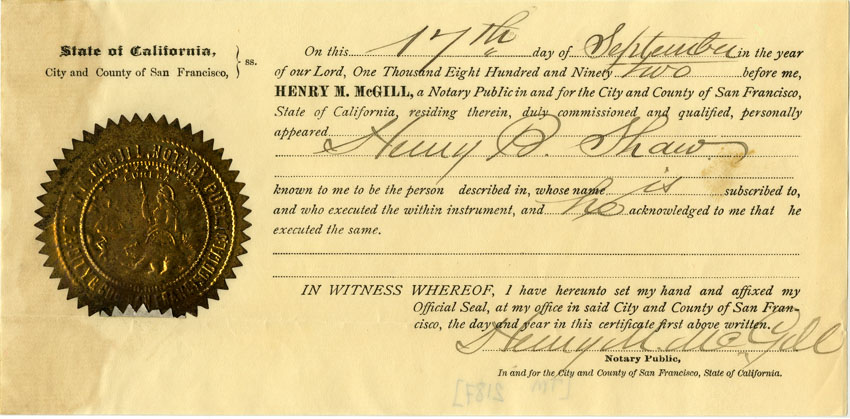 State of California,
City and County of San Francisco,
ss.
On this 17th day of September in the year
of our Lord, One Thousand Eight Hundred and Ninety two before me,
HENRY M. McGILL, a Notary Public in and for the City and County of San Francisco,
State of California, residing therein, duly commissioned and qualified, personally
appeared Henry B. Shaw
known to me to be the person described in, whose name is subscribed to,
and who executed the within instrument, and he acknowledged to me that he
executed the same.
IN WITNESS WHEREOF, I have hereunto set my hand and affixed my
Official Seal, at my office in said City and County of San Fran-
cisco, the day and year in this certificate first above written.
Henry M. McGill
Notary Public,
In and for the City and County of San Francisco, State of California.
McGILL, NOTARY PUBLIC